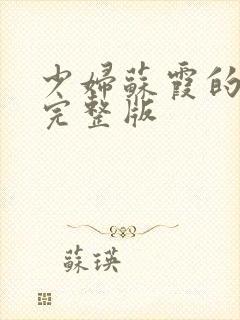 少婦蘇霞的
完整版
蘇瑛